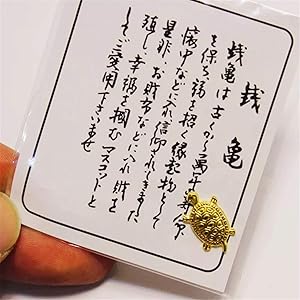 銭亀
銭亀は古くから萬年の寿命
を保ち福を招く縁起物として
懐中などに入れ信仰されてきまし
是非、お財布などに入れ財を
殖し、幸福を掴むマスコットと
してご愛用下さいませ